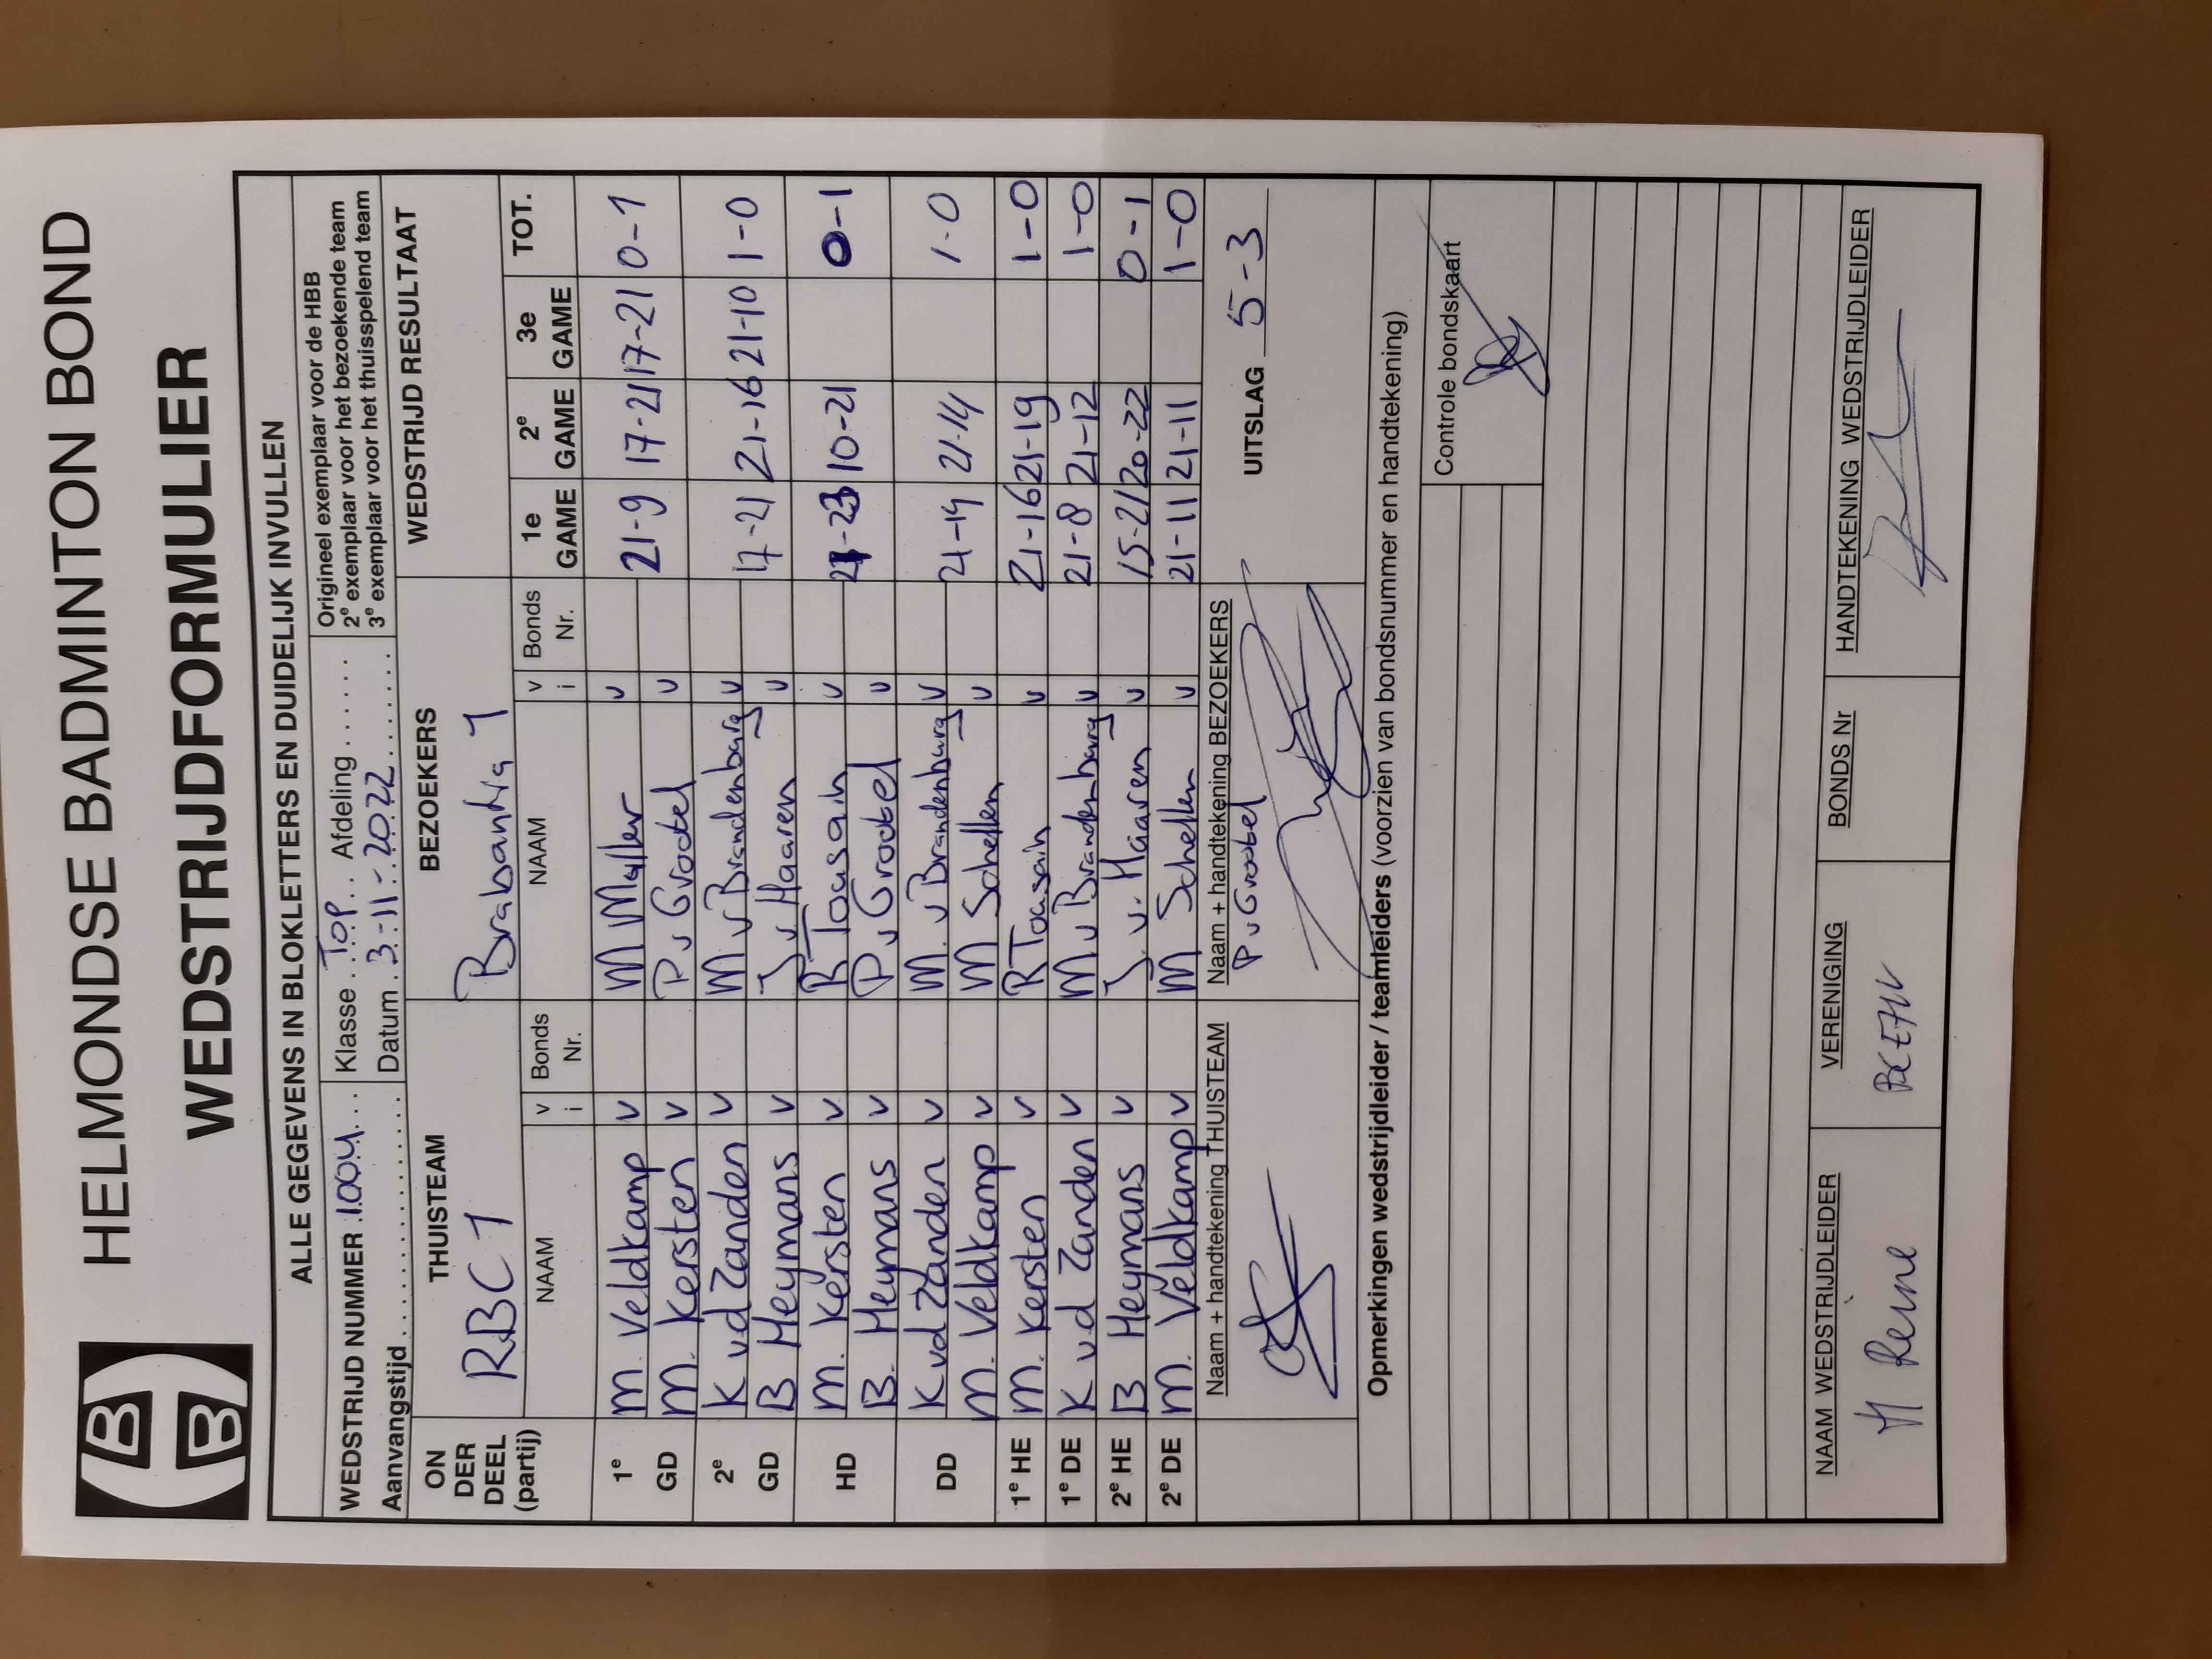 HELMONDSE BADMINTON BOND
WEDSTRIJDFORMULIER
ALLE GEGEVENS IN BLOKLETTERS EN DUIDELIJK INVULLEN
WEDSTRIJD NUMMER 1004
Aanvangstijd
Klasse TOP Afdeling
Datum 3-11-2022
Origineel exemplaar voor de HBB
2e exemplaar voor het bezoekende team
3e exemplaar voor het thuisspelend team
ON DER DEEL (partij) THUISTEAM BEZOEKERS WEDSTRIJD RESULTAAT
RBC 1 Brabantia 1
NAAM v i Bonds Nr. NAAM v i Bonds Nr. 1e GAME 2e GAME 3e GAME TOT.
1e M. Veldkamp v M Muller v 21-9 17-21 17-21 0-1
GD M. Kersten v P v Grootel v
2e K vd Zanden v M v Brandenburg v 17-21 21-16 21-10 1-0
GD B Heymans v J v Haaren v
HD M. Kersten v R Tousain v 21-23 10-21 0-1
B. Heymans v P v Grootel v
DD K vd Zanden v M. v Brandenburg v 21-14 21-14 1-0
M. Veldkamp v M Schellen v
1e HE M. Kersten v R Tousain v 21-16 21-19 1-0
1e DE K vd Zanden v M v Brandenburg v 21-8 21-12 1-0
2e HE B Heymans v J v. Haaren v 15-21 20-22 0-1
2e DE M. Veldkamp v M Schellen v 21-11 21-11 1-0
Naam + handtekening THUISTEAM
Naam + handtekening BEZOEKERS
P v Grootel
UITSLAG 5-3
Opmerkingen wedstrijdleider / teamleiders (voorzien van bondsnummer en handtekening)
Controle bondskaart
NAAM WEDSTRIJDLEIDER VERENIGING BONDS Nr HANDTEKENING WEDSTRIJDLEIDER